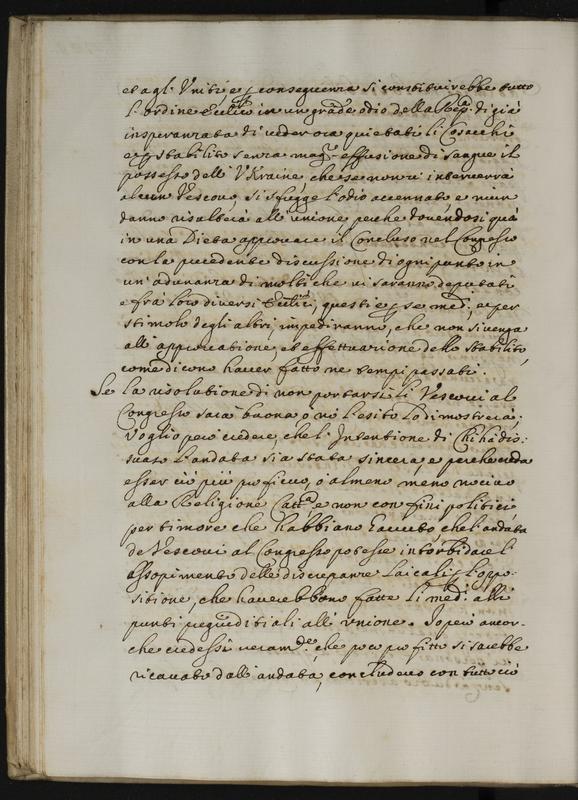 et agl' Uniti; e p conseguenza si constituirebbe tutto
l'ordine Eccl.co in un grãd'odio della Rep.ca di già
insperanzata di veder ora quietati li Cosacchi
e stabilito senza mag.r effusione di sangue il
possesso dell' Ukraine, che se non v'interverrà
alcun Vescovo, si sfugge l'odio accennato e niun
danno risulterà all' unione perche dovendosi quà
in una Dieta approvare il Concluso nel Congresso
con la precedente discussione di ogni punto in
un' adunanza di molti che vi saranno deputati
e frà loro diversi Eccl.ci, questi e p se med.i, e per
stimolo degli altri impediranno, che non si venga
all' approvatione, et effettuatione dello stabilito,
come dicono haver fatto ne tempi passati.
Se la risolutione di non portarsi li Vescovi al
Congresso sarà buona ò nò l'esito lo dimostrerà;
voglio però credere, che l' Intentione di Chi hà dis:
suaso l'andata sia stata sincera, e perche creda
esser ciò più proficuo, ò almeno meno nocivo
alla Religione Catt.ca e non con fini politici,
per timore che habbiano havuto che l'andata
de Vescovi al Congresso potesse intorbidare l'
assopimento delle discrepanze laicali p l'oppo:
sitione, che haverebbono fatta li med.i alli
punti pregiuditiali all' unione. Io però ancor-
che credessi veram.te, che poco profitto si sarebbe
ricavato dall' andata, concludevo con tutto ciò